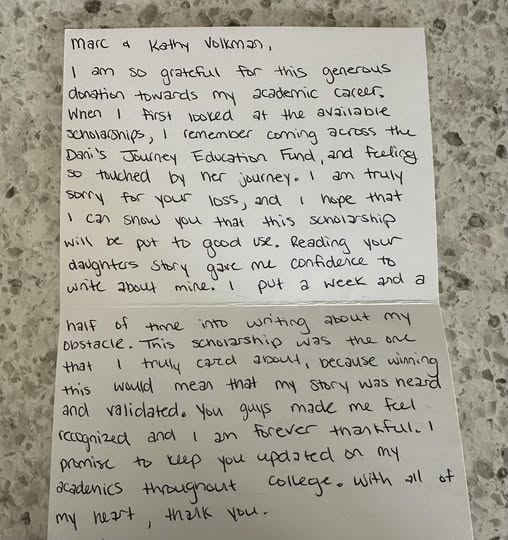 Marc & Kathy Volkman,
I am so grateful for this generous
donation towards my academic career.
When I first looked at the available
scholarships, I remember coming across the
Dani's Journey Education Fund, and feeling
so touched by her journey. I am truly
sorry for your loss, and I hope that
I can show you that this scholarship
will be put to good use. Reading your
daughters story gave me confidence to
write about mine. I put a week and a
half of time into writing about my
obstacle. This scholarship was the one
that I truly card about, because winning
this would mean that my story was heard
and validated. You guys made me feel
recognized and I am forever thankful. I
promise to keep you updated on my
academics throughout college. With all of
my heart, thank you.